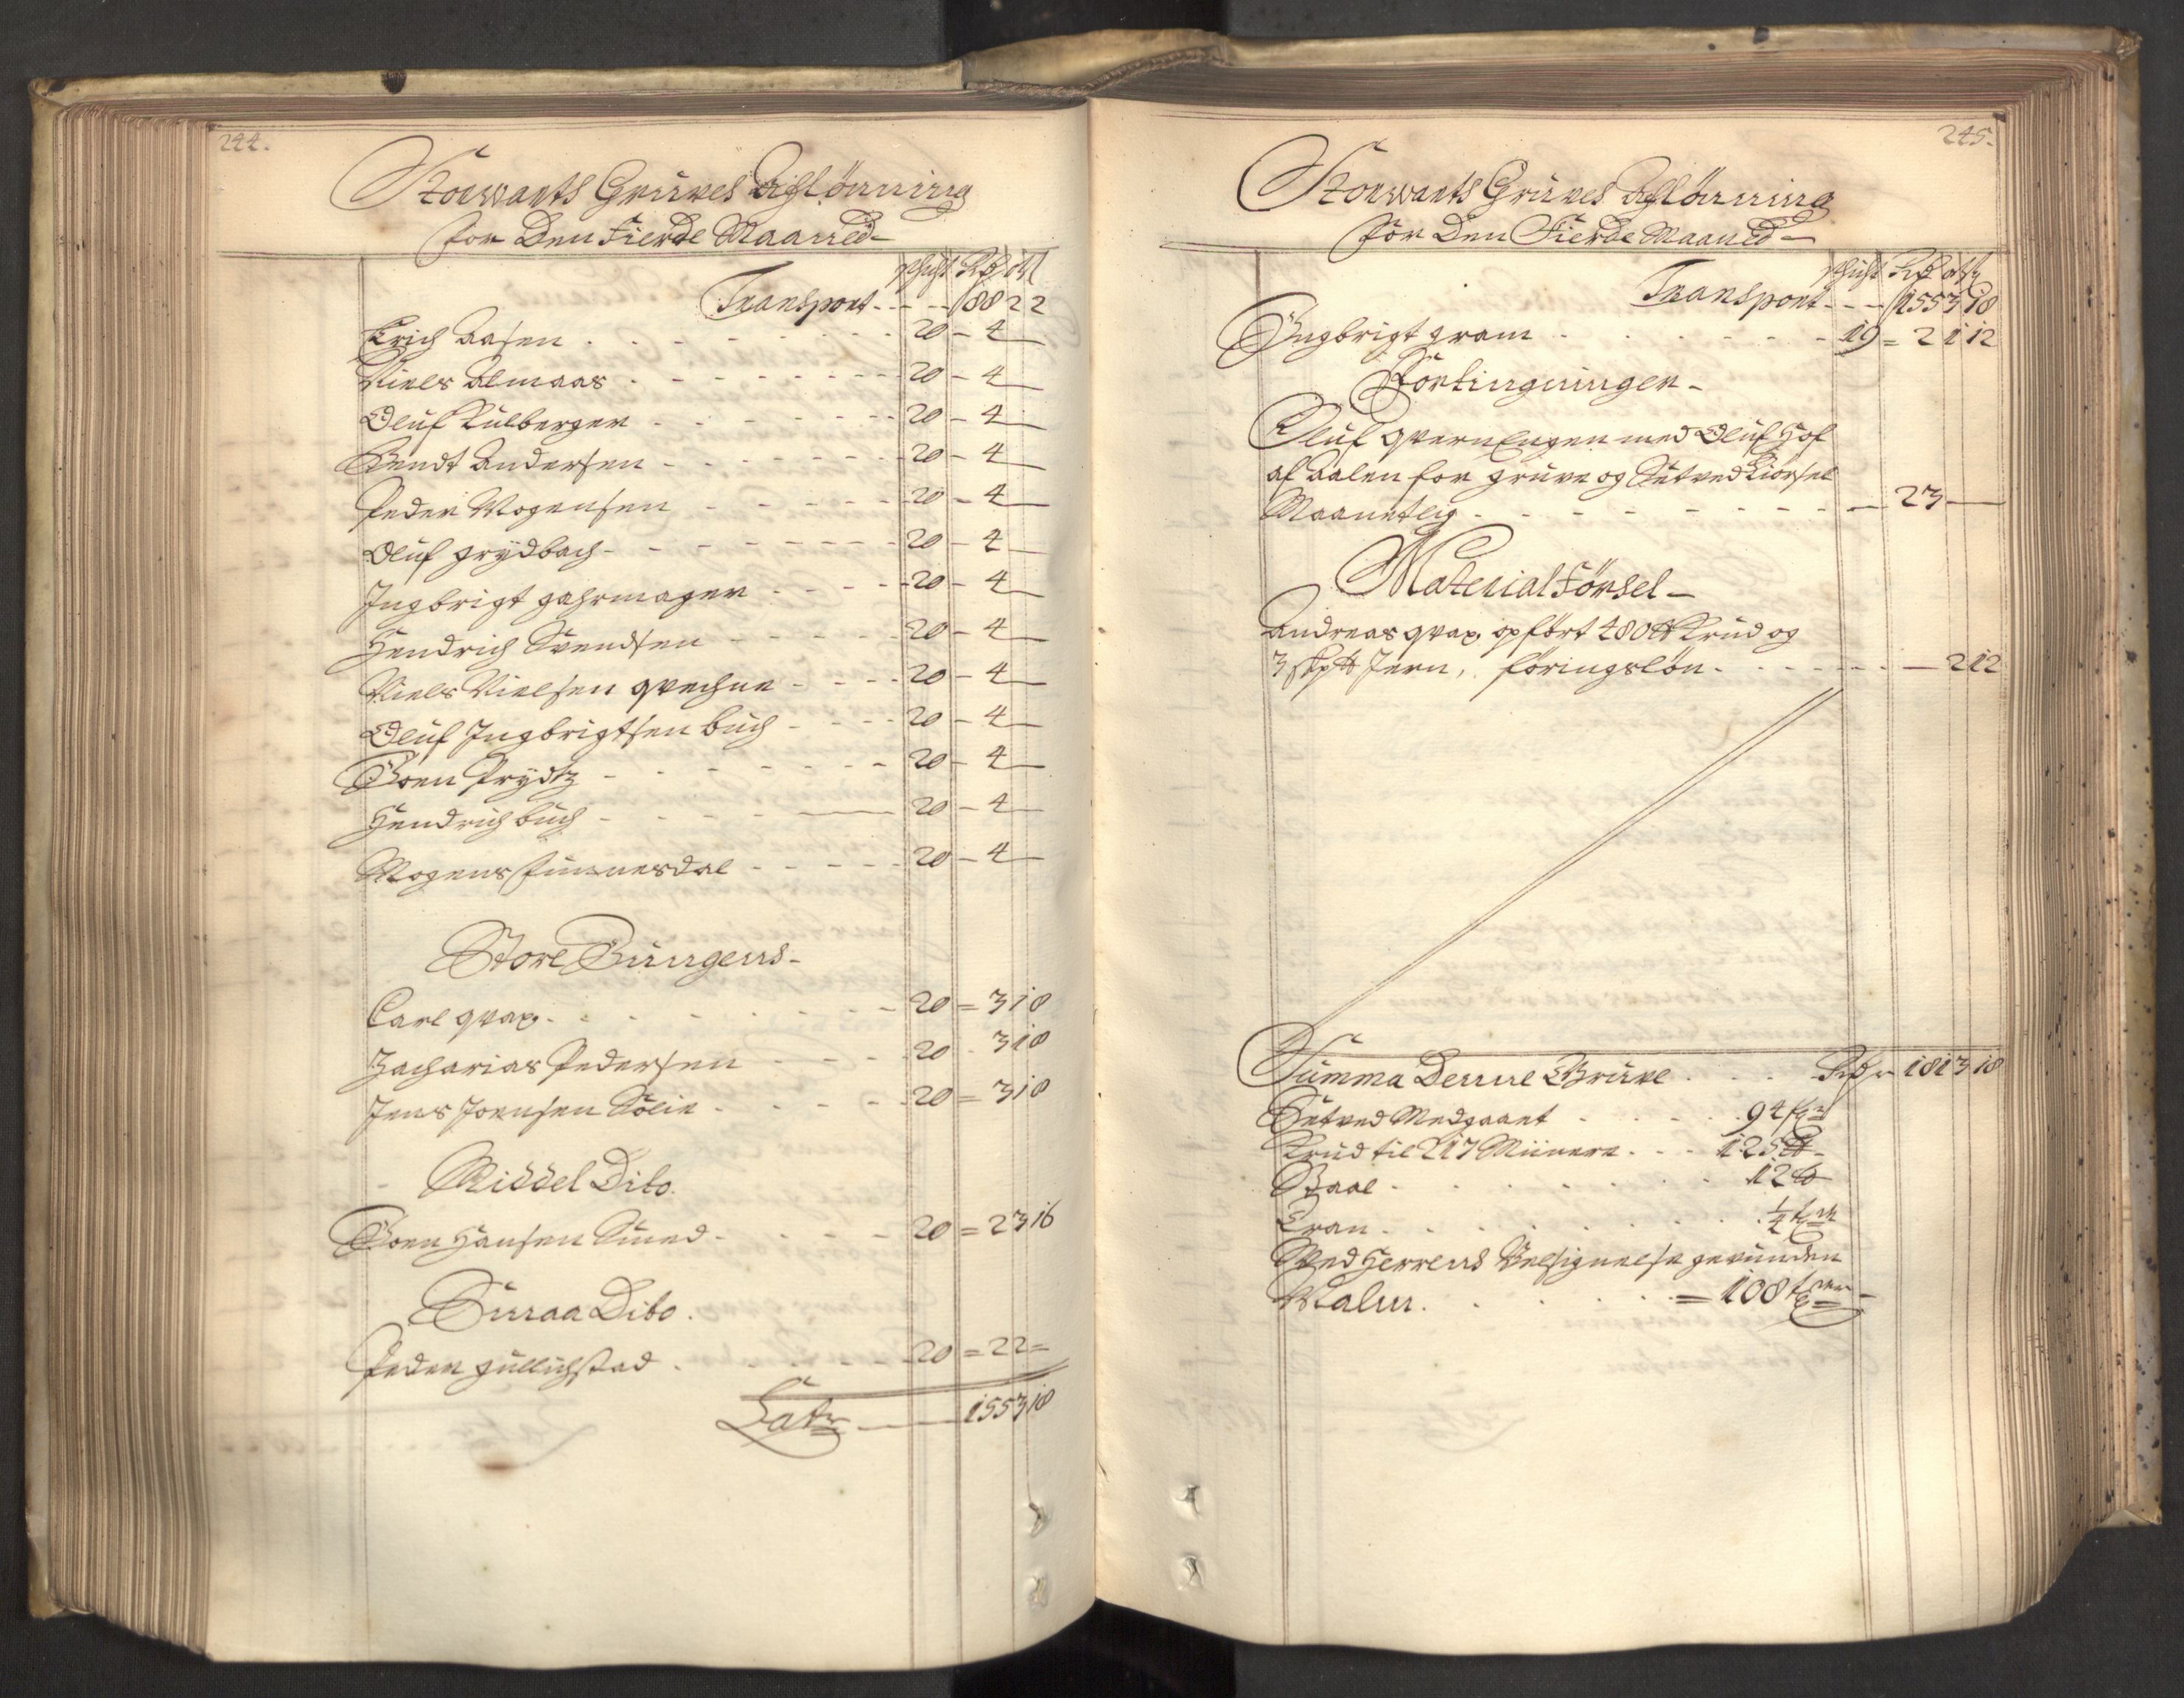 244.
Storwarts Gruves Aflönning
for Den Fierde Maaned
schicht Rdr ort ß
Transport - - - 188 2 2
Erich Aasen - - - 20 - 4
Niels Almaas - - - 20 - 4
Oluf Kulberger - - - 20 - 4
Bendt Andersen - - - 20 - 4
Peder Mogensen - - - 20 - 4
Oluf Grydbach - - - 20 - 4
Ingbrigt Gahrmager - - - 20 - 4
Hendrich Svendsen - - - 20 - 4
Niels Nielsen qvechne - - - 20 - 4
Oluf Ingbrigtsen buch - - - 20 - 4
Joen Prydtz - - - 20 - 4
Hendrich buch - - - 20 - 4
Mogens Finnesdal - - - 20 - 4
Store Drengens
Carl qvap - - - 20 = 3 1 8
Zacharias Pedersen - - - 20 - 3 1 8
Jens Joensen Sölie - - - 20 = 3 1 8
Middel Dito
Joen Hansen Smed - - - 20 = 2 3 16
Smaa Dito.
Peder Gullichstad - - - 20 = 2 2 =
Lat. - - - 155 3 18
245.
Storwarts Gruves Aflönning
for Den Fierde Maaned
schicht Rdr ort ß
Transport - - - 155 3 18
Ingbrigt Gram - - - 19 = 2 1 12
Fortingninger
Oluf qvernEngen med Oluf Hof
af Aalen for gruve og Setved Kiörsel
Maanetlig - - - 23
Material Försel
Andreas qvap, opfört 480 ℔ Krud og
3 skp℔ Jern, föringslön - - - 2 12
Summa Denne Gruve - - - Rdr 181 3 18
Setved Medgaaet - - - 94
Krud til 217 Miinere - - - 125 ℔
Staal - - - 12 ℔
Tran - - - ¼
Med Herrens Velsignelse gevunden
Malm - - - = 108